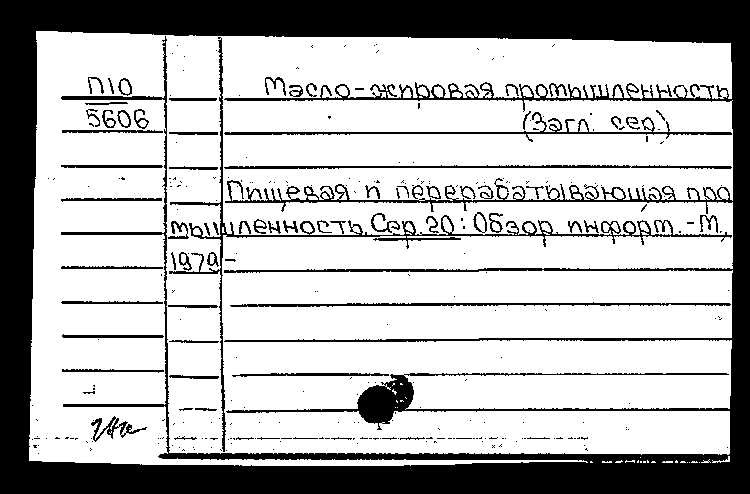 П10
5606
Масло-жировая промышленность
(Загл. сер.)
Пищевая и перерабатывающая про
мышленность. Сер. 20: Обзор. информ. -М.,
1979-